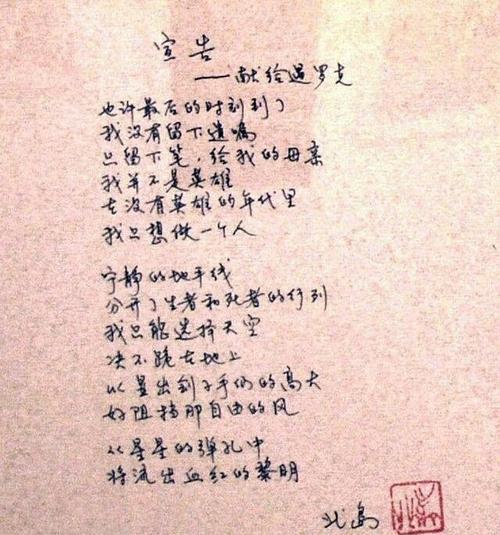 宣告
——献给遇罗克
也许最后的时刻到了
我没有留下遗嘱
只留下笔，给我的母亲
我并不是英雄
在没有英雄的年代里
我只想做一个人
宁静的地平线
分开了生者和死者的行列
我只能选择天空
决不跪在地上
以显出刽子手们的高大
好阻挡那自由的风
从星星的弹孔中
将流出血红的黎明
北岛